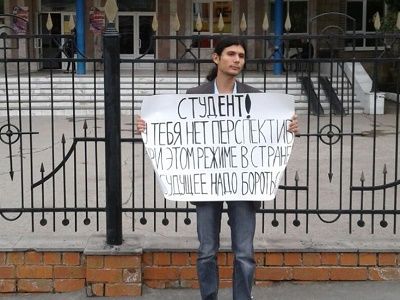 СТУДЕНТ!
ТЕБЯ НЕТ ПЕРСПЕКТИВ
РИ ЭТОМ РЕЖИМЕ В СТРАН
УДУЩЕЕ НАДО БОРОТЬ